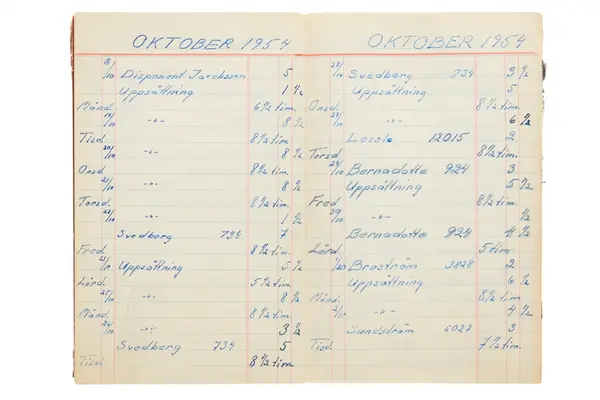 OKTOBER 1954
18/10 Disponent Jacobsson 5
Uppsättning 1 ½
Månd. 6½ tim.
19/10 -"- 8 ½
Tisd. 8½ tim.
20/10 -"- 8 ½
Onsd. 8½ tim.
21/10 -"- 8 ½
Torsd. 8½ tim.
22/10 -"- 1 ½
Svedberg 734 7
Fred. 8½ tim.
23/10 Uppsättning 5 ½
Lörd. 5½ tim.
25/10 -"- 8 ½
Månd. 8½ tim.
26/10 -"- 3 ½
Svedberg 734 5
Tisd. 8½ tim.
OKTOBER 1954
Svedberg 734 3 ½
Uppsättning 5
Onsd. 8½ tim.
-"- 6 ½
2
Torsd. 8½ tim.
29/10 Bernadotte 924 3
Uppsättning 5 ½
Fred 8½ tim.
30/10 -"- ½
Bernadotte 924 4 ½
Lörd. 5 tim
Broström 3828 2
Uppsättning 6 ½
Månd. 8½ tim
-"- 4 ½
Sandström 3
Tisd. 7½ tim.